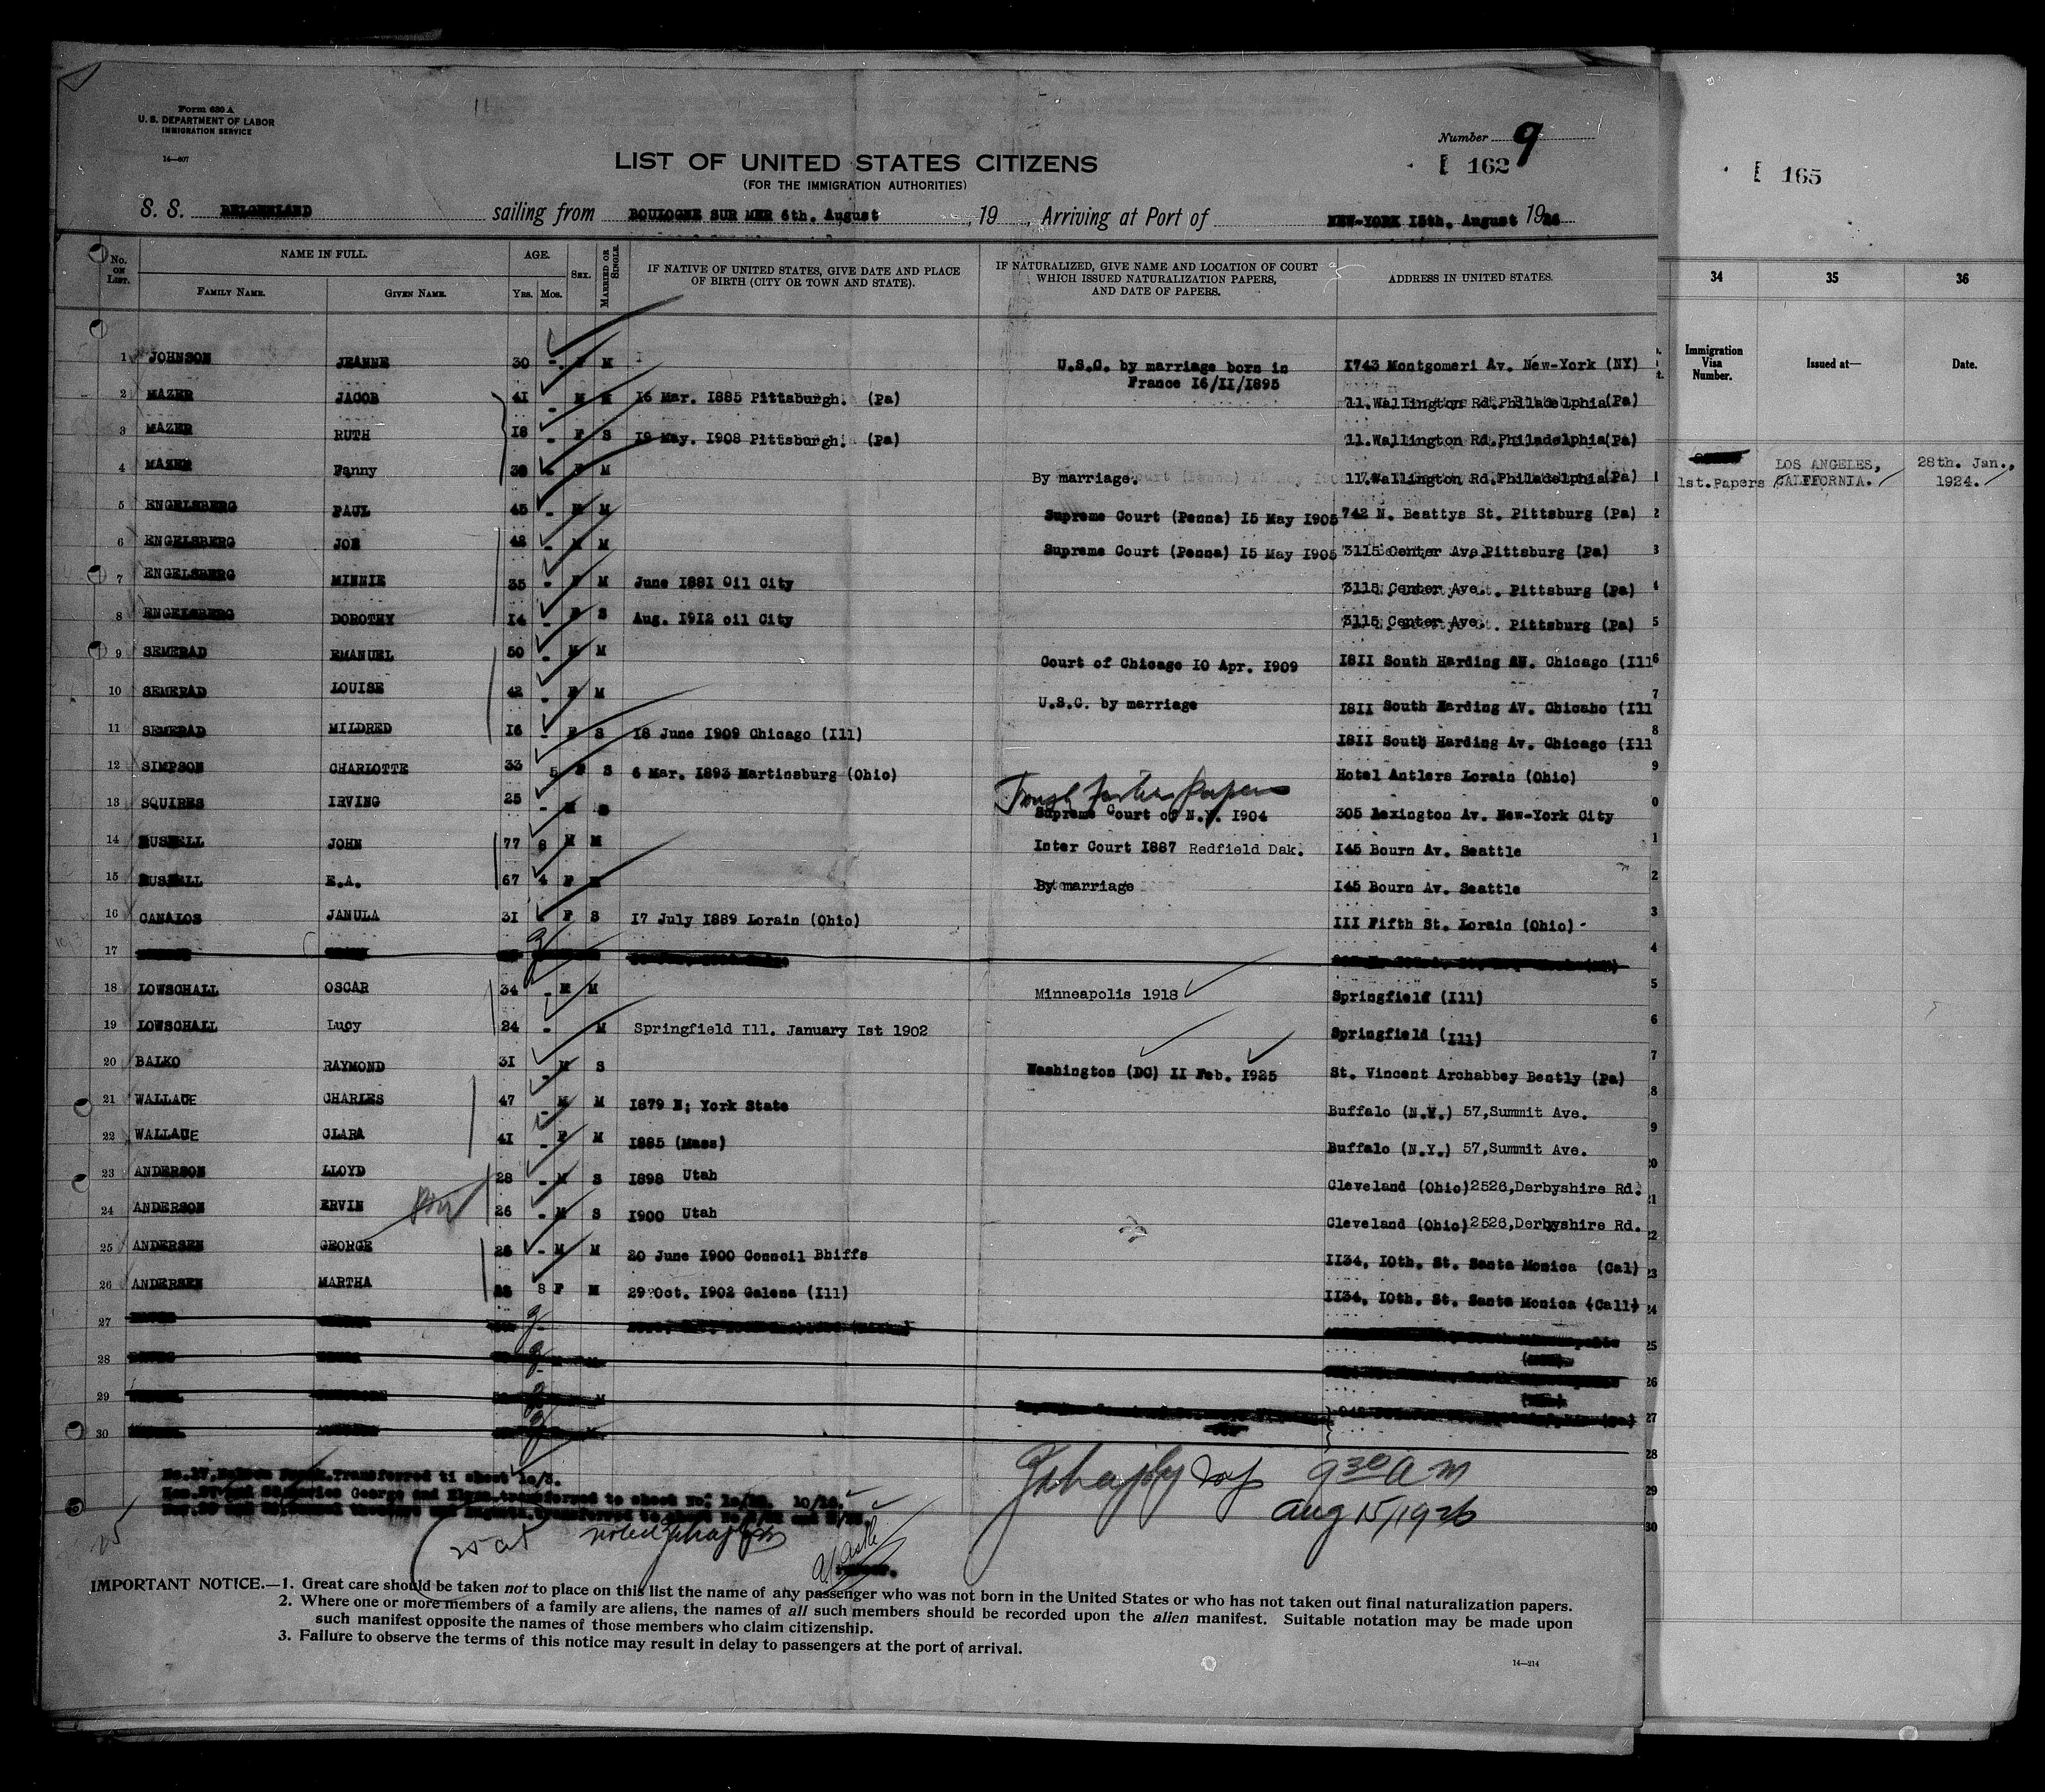 Form 630 A
U. S. DEPARTMENT OF LABOR
IMMIGRATION SERVICE
14—607
Number 9
162
165
LIST OF UNITED STATES CITIZENS
(FOR THE IMMIGRATION AUTHORITIES)
S. S. BELGENLAND sailing from BOULOGNE SUR MER 6th. August , 19 , Arriving at Port of NEW-YORK 15th. August 1926
No. ON LIST. NAME IN FULL. AGE. SEX. MARRIED OR SINGLE. IF NATIVE OF UNITED STATES, GIVE DATE AND PLACE OF BIRTH (CITY OR TOWN AND STATE). IF NATURALIZED, GIVE NAME AND LOCATION OF COURT WHICH ISSUED NATURALIZATION PAPERS, AND DATE OF PAPERS. ADDRESS IN UNITED STATES.
FAMILY NAME. GIVEN NAME. YRS. MOS.
34 35 36
Immigration Visa Number. Issued at— Date.
1 JOHNSON JEANNE 30 - F M U.S.C. by marriage born in France I6/II/I895 I743 Montgomeri Av. New-York (NY)
2 MAZER JACOB 4I - M M I6 Mar. I885 Pittsburgh. (Pa) 11.Wallington Rd.Philadelphia(Pa)
3 MAZER RUTH I8 - F S I9 May. I908 Pittsburgh. (Pa) 11.Wallington Rd.Philadelphia(Pa)
4 MAZER Fanny 39 - F M By marriage. 11.Wallington Rd.Philadelphia(Pa)
1st.Papers LOS ANGELES, CALIFORNIA. 28th. Jan., 1924.
5 ENGELSBERG PAUL 45 - M M Supreme Court (Penna) I5 May I905 742 N. Beattys St. Pittsburg (Pa)
6 ENGELSBERG JOE 42 - M M Supreme Court (Penna) I5 May I905 3115 Center Ave Pittsburg (Pa)
7 ENGELSBERG MINNIE 35 - F M June I88I Oil City 3115 Center Ave. Pittsburg (Pa)
8 ENGELSBERG DOROTHY I4 - F S Aug. I9I2 oil City 3115 Center Ave. Pittsburg (Pa)
9 SEMERAD EMANUEL 50 - M M Court of Chicago IO Apr. I909 I8II South Harding AV. Chicago (Ill
10 SEMERAD LOUISE 42 - F M U.S.C. by marriage I8II South Harding AV. Chicaho (Ill
11 SEMERAD MILDRED I6 - F S I8 June I909 Chicago (Ill) I8II South Harding Av. Chicago (Ill
12 SIMPSON CHARLOTTE 33 5 F S 6 Mar. I893 Martinsburg (Ohio) Hotel Antlers Lorain (Ohio)
13 SQUIRES IRVING 25 - M S Supreme Court of N.Y. I904 305 Lexington Av. New-York City
14 JOHN 77 8 M M Inter Court I887 Redfield Dak. I45 Bourn Av. Seattle
15 E.A. 67 4 F M By marriage I45 Bourn Av. Seattle
16 CANALOS JANULA 3I F S I7 July I889 Lorain (Ohio) III Fifth St. Lorain (Ohio)
17
18 LOWSCHALL OSCAR 34 - M M Minneapolis 1918 Springfield (Ill)
19 LOWSCHALL Lucy 24 - M Springfield Ill. January Ist 1902 Springfield (Ill)
20 BALKO RAYMOND 3I - M S Washington (DC) II Feb. I925 St. Vincent Archabbey Bently (Pa)
21 WALLACE CHARLES 47 - M M I879 N; York State Buffalo (N.Y.) 57,Summit Ave.
22 WALLACE CLARA 4I - F M I885 (Mass) Buffalo (N.Y.) 57,Summit Ave.
23 ANDERSON LLOYD 28 - M S I898 Utah Cleveland (Ohio) 2526,Derbyshire Rd.
24 ANDERSON ERVIN 26 - M S I900 Utah Cleveland (Ohio) 2526,Derbyshire Rd.
25 ANDERSEN GEORGE 26 - M M 20 June I900 Council Bhiffs II34, IOth. St. Santa Monica (Cal)
26 ANDERSEN MARTHA 8 F M 29 Oct. I902 Galena (Ill) II34, IOth. St. Santa Monica (Call)
27
28
29
30
No.17, Transferred ti sheet 10/3.
George and transferred to sheet No; 10/16.
transferred to sheet
noted
9 30 A M
Aug 15/1926
IMPORTANT NOTICE.—1. Great care should be taken not to place on this list the name of any passenger who was not born in the United States or who has not taken out final naturalization papers.
2. Where one or more members of a family are aliens, the names of all such members should be recorded upon the alien manifest. Suitable notation may be made upon
such manifest opposite the names of those members who claim citizenship.
3. Failure to observe the terms of this notice may result in delay to passengers at the port of arrival.
14—214